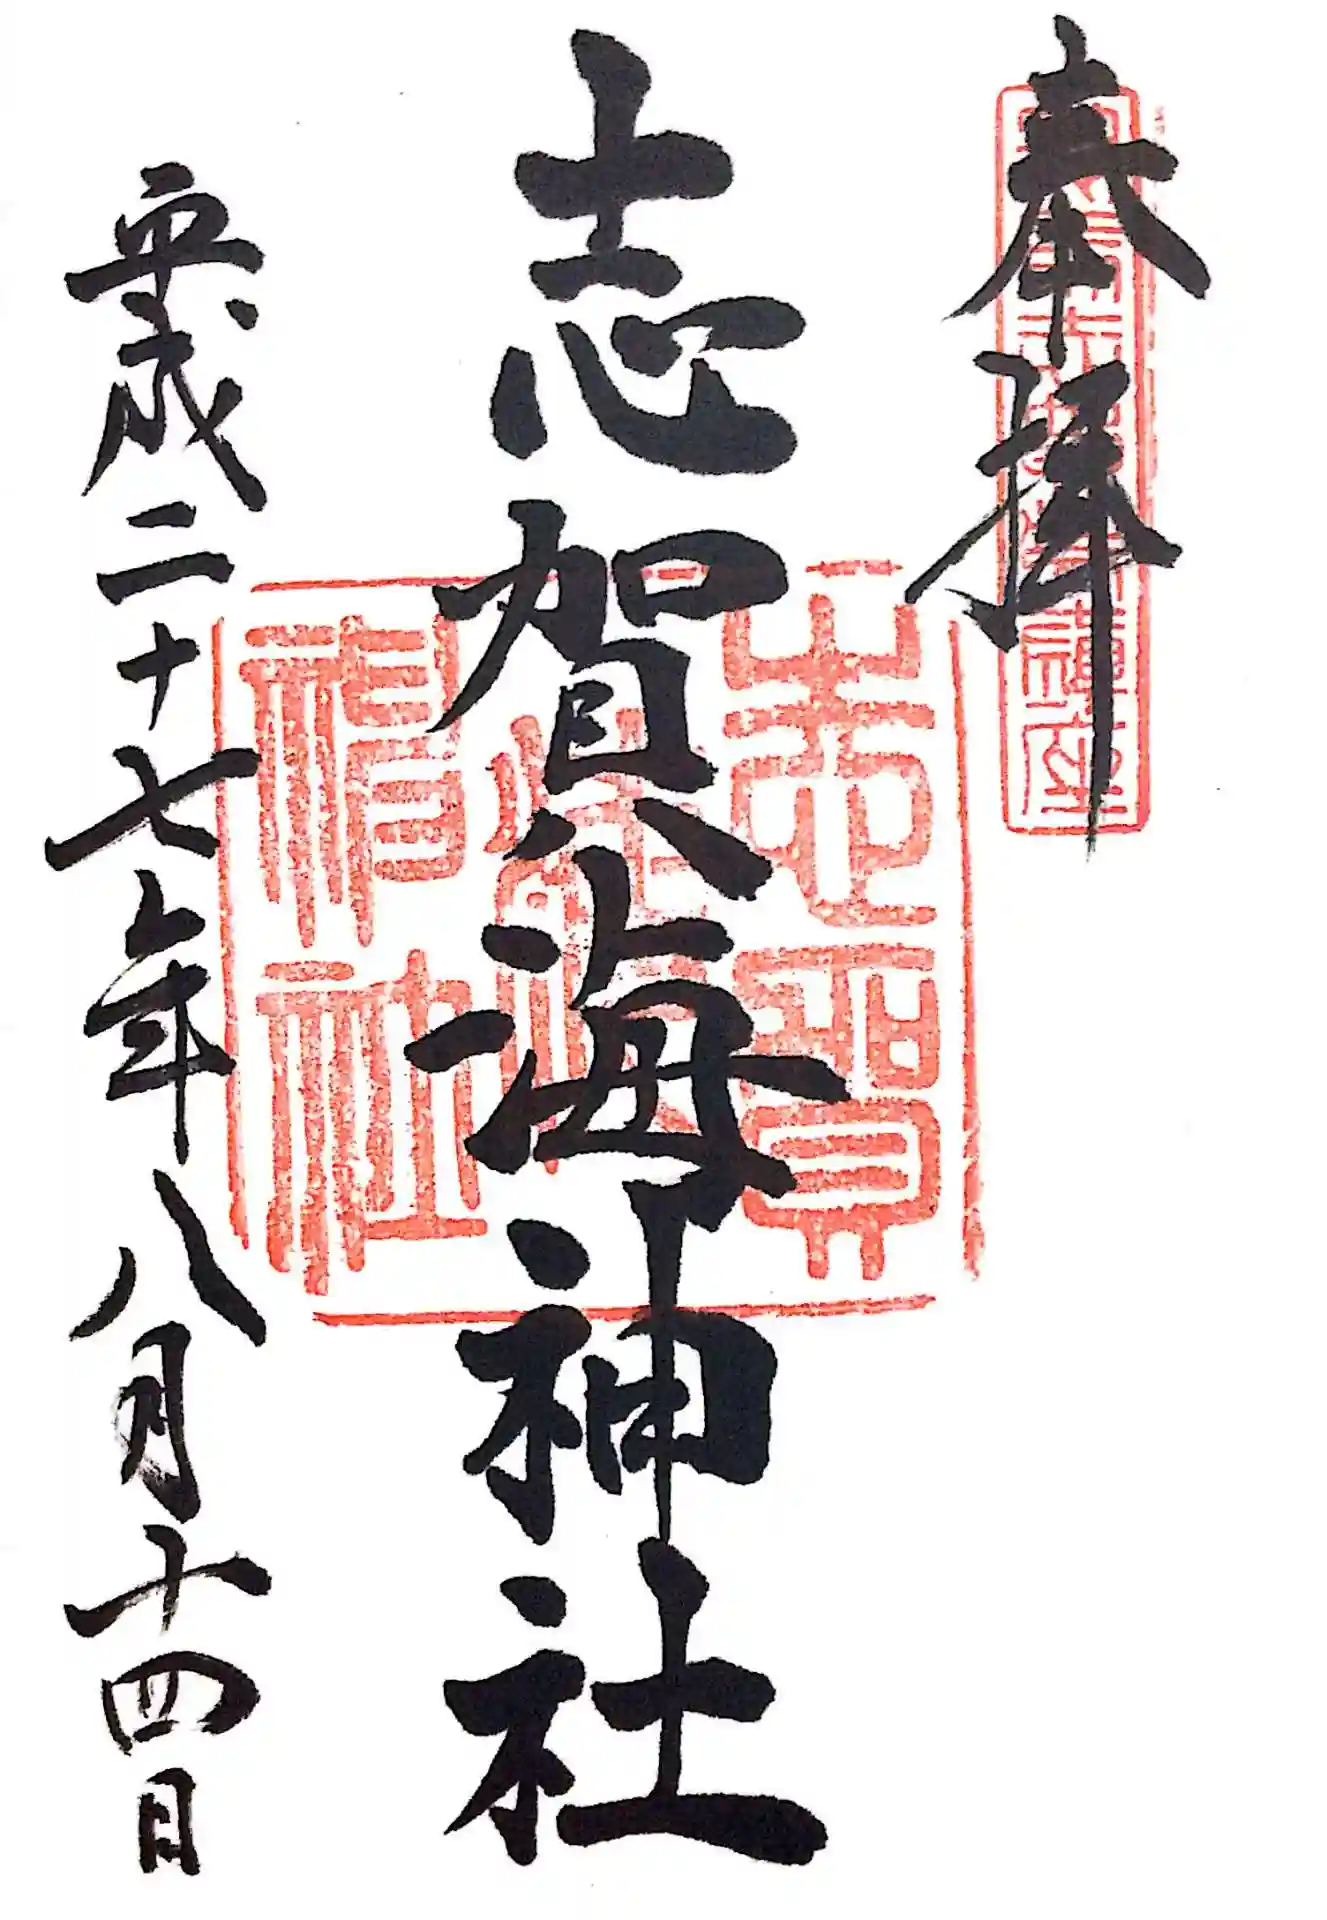 奉拝
志賀海神社
志賀海神社
平成二十七年八月十四日